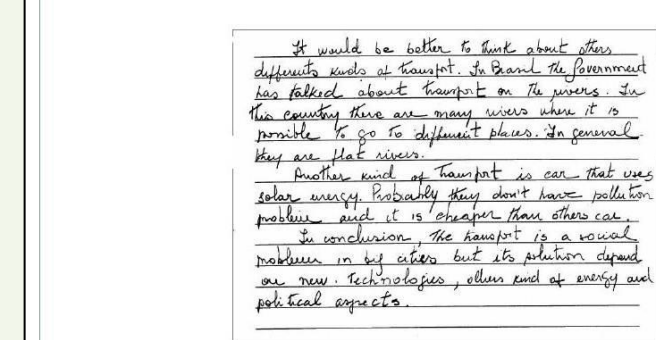 It would be better to think about others
differents kinds of transport. In Brasil the Government
has talked about transport on the rivers. In
this country there are many rivers where it is
possible to go to different places. In general
they are flat rivers.
Another kind of transport is car that uses
solar energy. Probably they don't have pollution
problem and it is cheaper than others car.
In conclusion, the transport is a social
problem in big cities but its solution depend
on new technologies, others kind of energy and
political aspects.